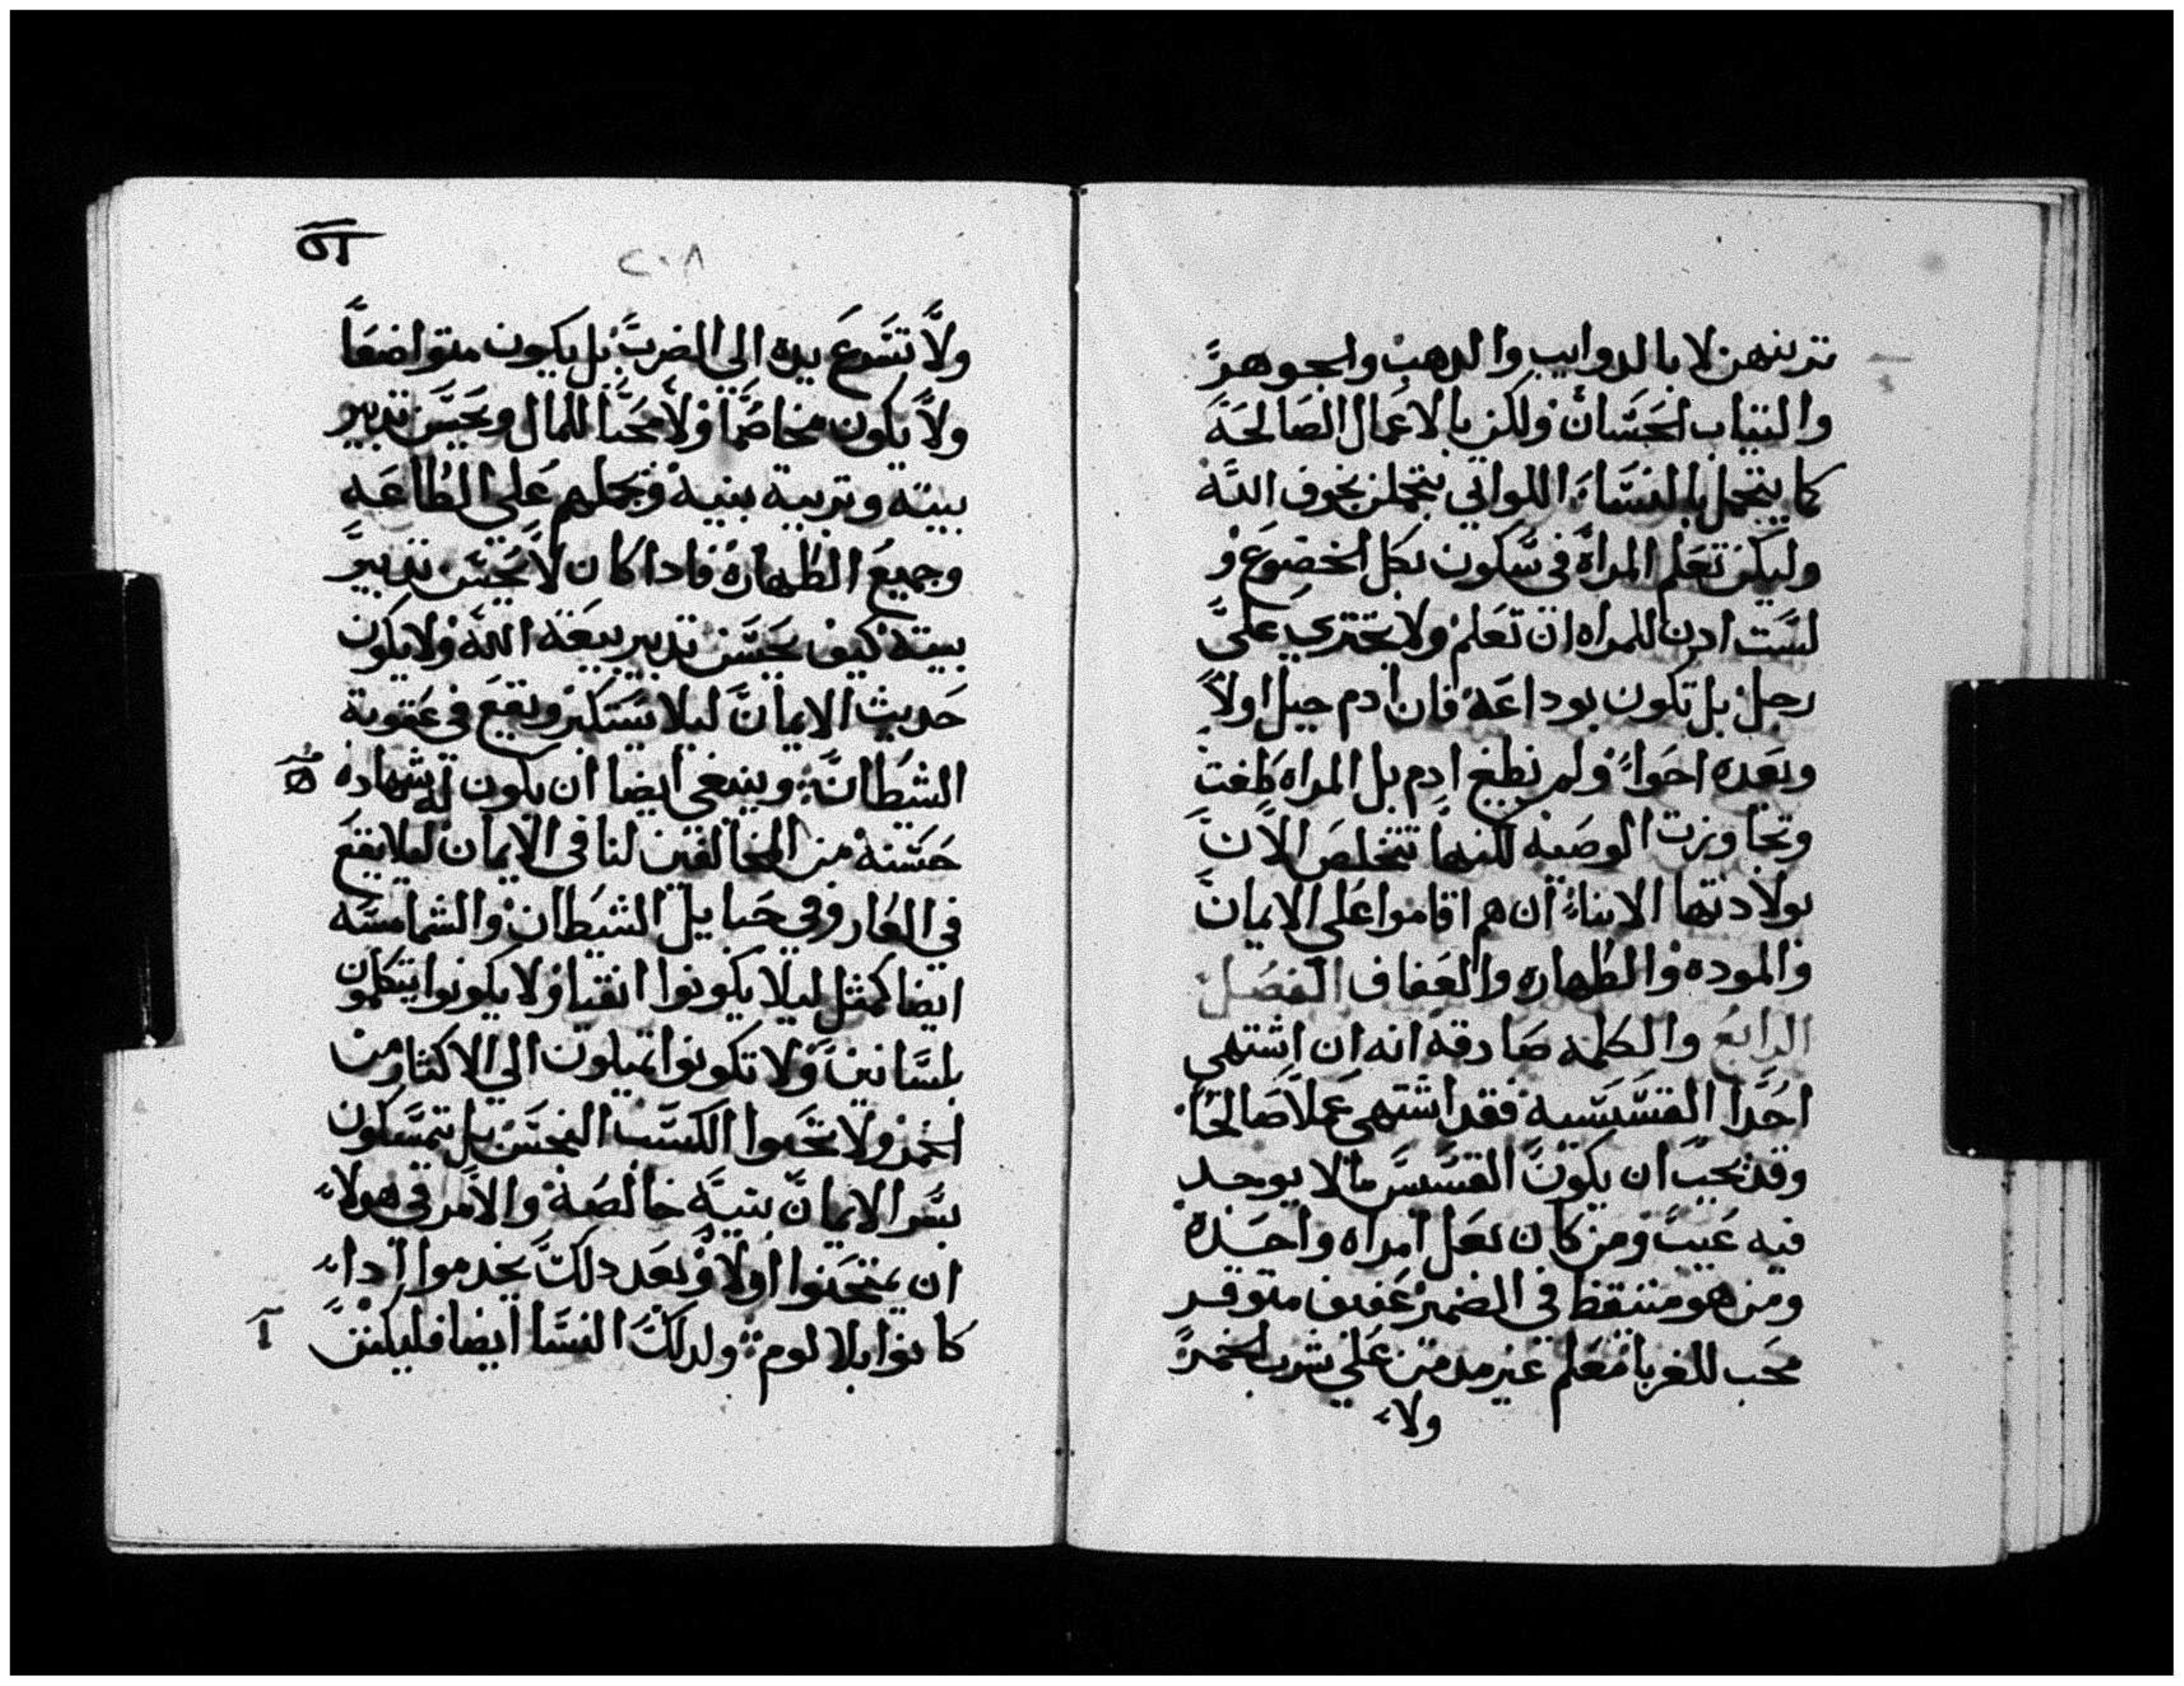 تزينهن لا بالدوايب والدهب والجوهر
والتياب الحسان ولكن بالاعمال الصالحة
كما يتجمل بالنساء اللواتي يتجملن بخوف الله
وليكن تعلم المراة في سكون بكل الخضوع و
لست ادن للمراه ان تعلم ولا تجتري على
رجل بل تكون بوداعة فان ادم جبل اولا
وبعده احوا ولم نطغ ادم بل المراه طغت
وتجاوزت الوصيه لكنها تتخلص الان
بولادتها الابناء ان هم اقاموا على الايمان
والموده والطهاره والعفاف الفصل
الرابع والكلمه صادقه انه ان اشتهي
احدا القسيسية فقد اشتهي عملا صالحا
وقد يجب ان يكون القسيس مالا يوجد
فيه عيب ومن كان بعل امراه واحده
ومن هو متيقظ في الضمير عفيف متوقر
محب للغربا معلم غير مدمن على شرب الخمر
ولا
٢٠٨
ولا تسرع يده الى الضرب بل يكون متواضعا
ولا يكون مخاصما ولا محبا للمال ويحسن تدبير
بيته وتربية بنيه ويحملهم على الطاعه
وجميع الطهاره فادا كان لا يحسن تدبير
بيته كيف يحسن تدبير بيعة الله ولا يكون
حديث الايمان ليلا يستكبر ويقع في عقوبة
الشيطان وينبغي ايضا ان يكون له شهاده
حسنه من المخالفين لنا في الايمان ليلا يقع
في العار وفي حبايل الشيطان والشمامسه
ايضا كمثل ليلا يكونوا انقيا ولا يكونوا يتكلمون
بلسانين ولا تكونوا تميلون الي الاكثار من
الخمر ولا تحبوا الكسب النجس بل تتمسكون
بسر الايمان بنية خالصة والامر في هولاء
ان يمتحنوا اولا وبعد دلك يخدموا اداء
كانوا بلا لوم ولدلك النسا ايضا فليكنن